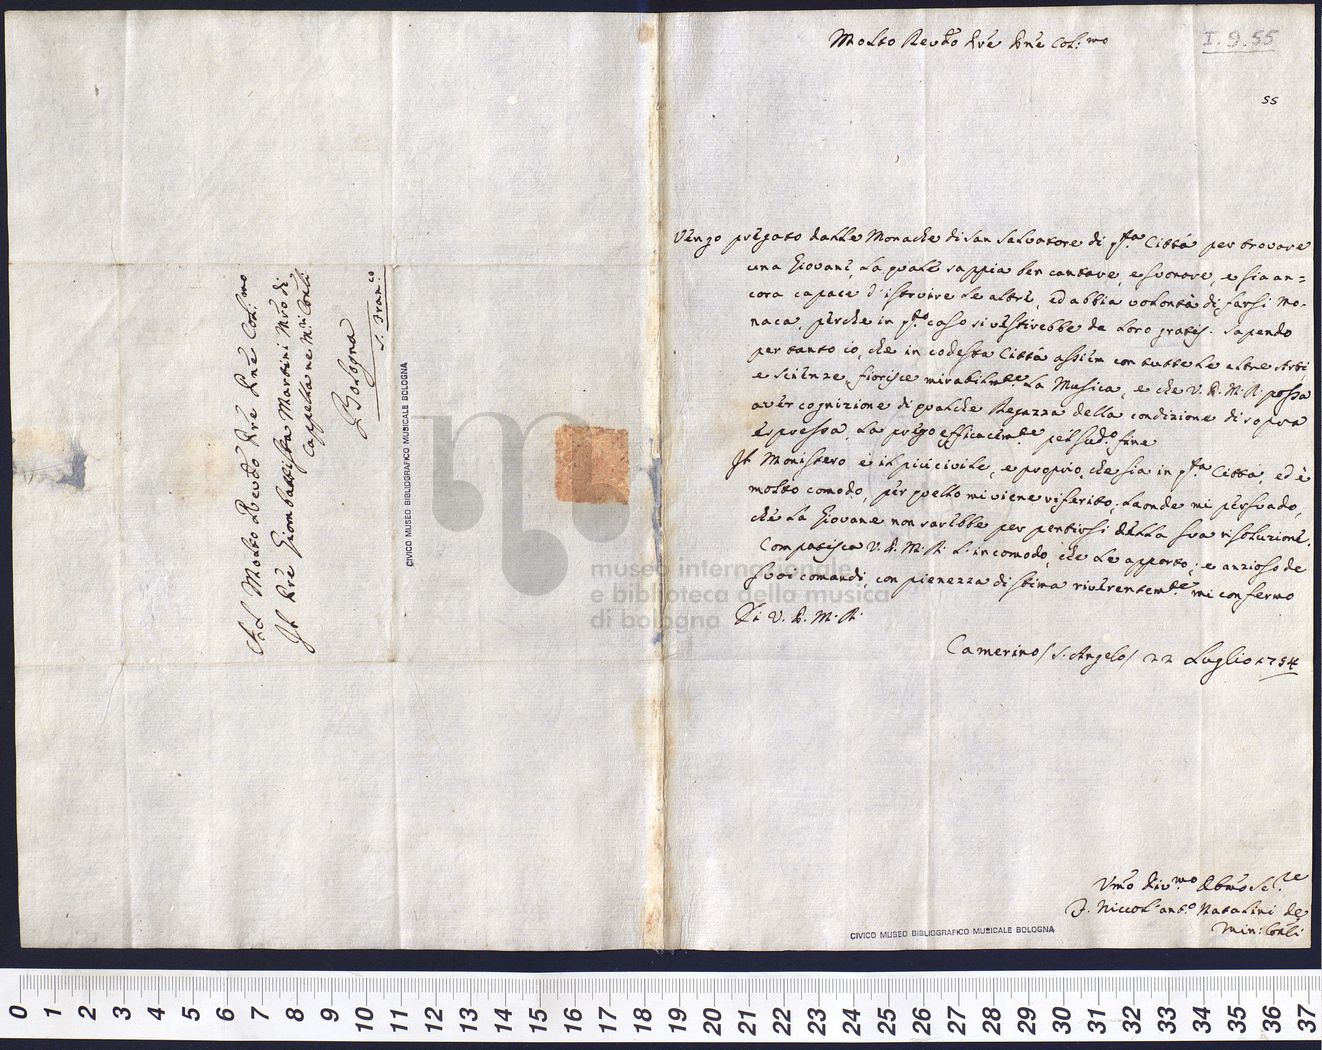 Molto Revdo Pre Pne Col:mo
I.9.55
55
Vengo pregato dalle Monache di San Salvatore di q.sta Città per trovare
una Giovane, la quale sappia ben cantare, e suonare, e sia an=
cora capace d'istruire le altre, ed abbia volontà di farsi Mo-
naca, perche in q.to caso si vestirebbe da loro gratis. Sapendo
per tanto io, che in codesta Città assiem con tutte le altre Arti,
e scienze fiorisce mirabilm.te la Musica, e che V. P. M. R. possa
aver cognizione di qualche Ragazza della condizione di sopra
espressa, la prego efficacem.te pel sud.o fine
Il Monistero è il più civile, e proprio, che sia in q.sta Città, ed è
molto comodo, per quello mi viene riferito, laonde mi persuado,
che la Giovane non sarebbe per pentirsi della sua risoluzione.
Compatisca V. P. M. R. l'incomodo, che le apporto; e anzioso de
suoi comandi, con pienezza di stima riverentem.te mi confermo
Di V. P. M. R.
Camerino / S. Angelo / 22 Luglio 1754
Umo Div.mo Obmo Se.re
F. Niccol'Ant.o Natalini de
Min: Conli
Al Molto Revdo Pre Pne Col:mo
Il Pre Giambattista Martini Mro di
Cappella ne M.ri Conli
Bologna
S. Fran.co
CIVICO MUSEO BIBLIOGRAFICO MUSICALE BOLOGNA
CIVICO MUSEO BIBLIOGRAFICO MUSICALE BOLOGNA
museo internazionale
e biblioteca della musica
di bologna
0 1 2 3 4 5 6 7 8 9 10 11 12 13 14 15 16 17 18 19 20 21 22 23 24 25 26 27 28 29 30 31 32 33 34 35 36 37